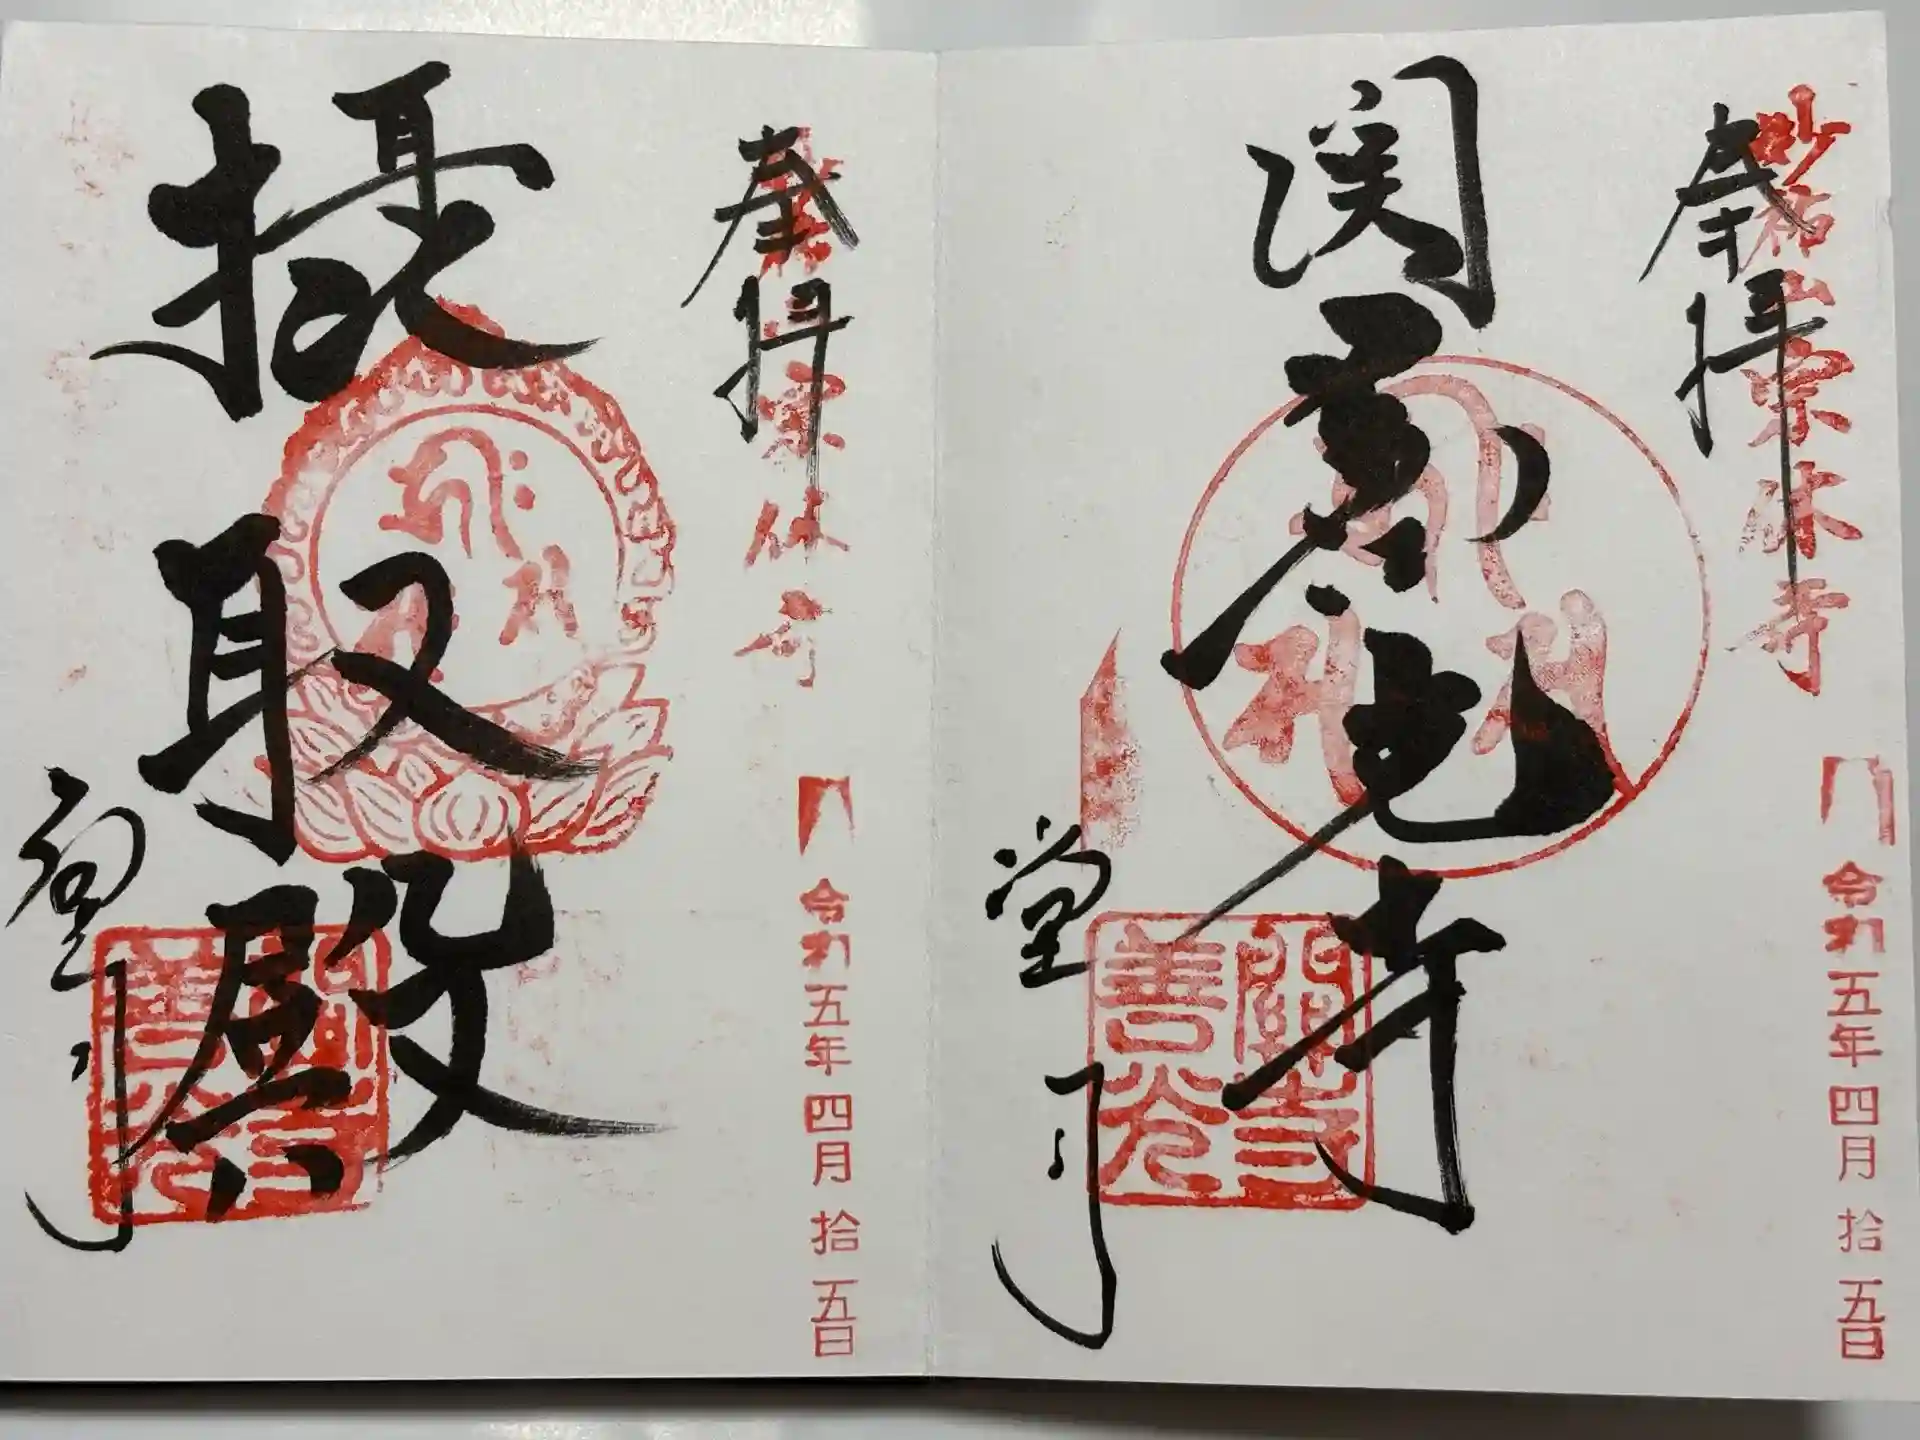 奉拝
妙祐山宗休寺
令和五年四月拾五日
関善光寺
善光
關寺
堂司
奉拝
宗休寺
令和五年四月拾五日
摂取殿
堂司